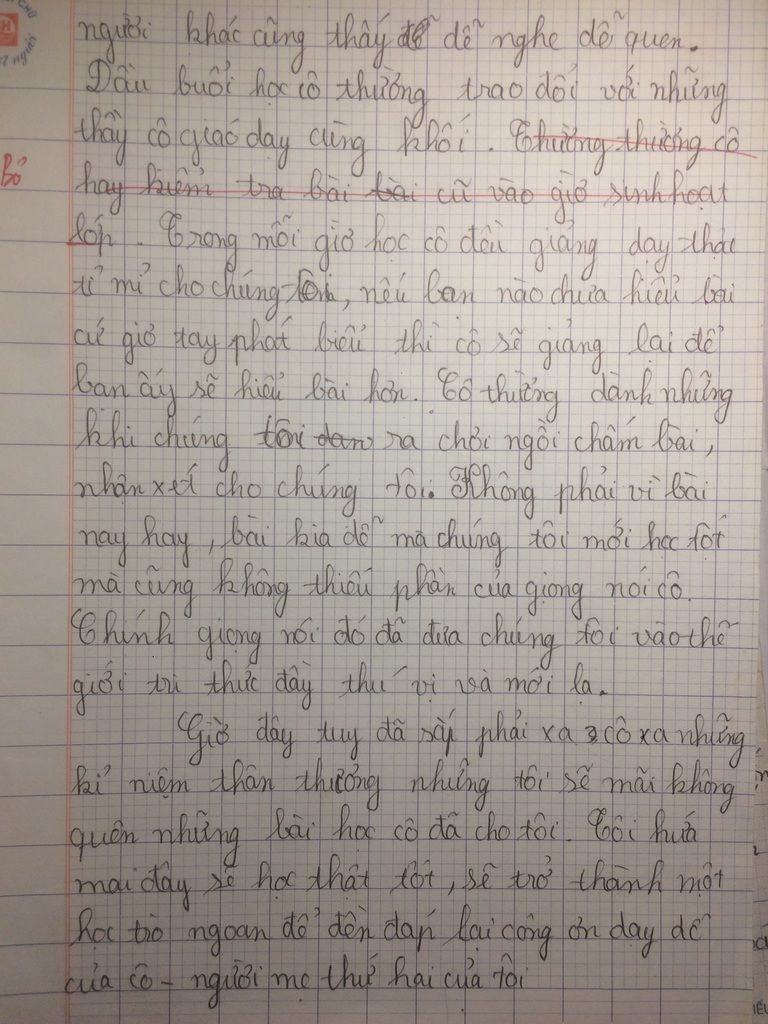 người khác cũng thấy dễ dễ nghe dễ quen.
Đầu buổi học cô thường trao dổi với những
thầy cô giaó dạy cùng khối. Thường thường cô
Bỏ
hay kiểm tra bài bài cũ vào giờ sinh hoạt
lớp. Trong mỗi giờ học cô đều giảng dạy thật
tỉ mỉ cho chúng tôi, nếu bạn nào chưa hiểu bài
cứ giơ tay phát biểu thì cô sẽ giảng lại để
bạn ấy sẽ hiểu bài hơn. Cô thường dành những
khi chúng tôi dan ra chơi ngồi chấm bài,
nhận xét cho chúng tôi. Không phải vì bài
nay hay, bài kia dễ mà chúng tôi mới học tốt
mà cũng không thiếu phần của giọng nói cô.
Chính giọng nói đó đã đưa chúng tôi vào thế
giới tri thức đầy thú vị và mới lạ.
Giờ đây tuy đã sắp phải xa cô xa những
kỉ niệm thân thương nhưng tôi sẽ mãi không
quên những bài học cô đã cho tôi. Tôi hứa
mai đây sẽ học thật tốt, sẽ trở thành một
học trò ngoan để đền đáp lại công ơn dạy dỗ
của cô - người mẹ thứ hai của tôi